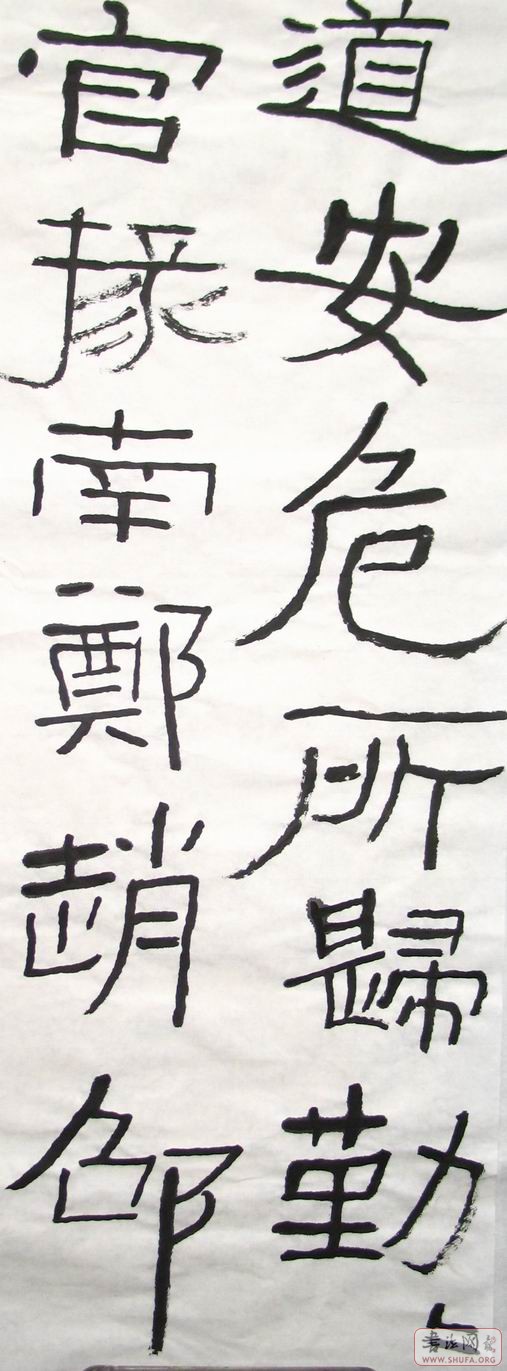 道安危所歸勤
官掾南鄭趙邵
書法网
WWW.SHUFA.ORG